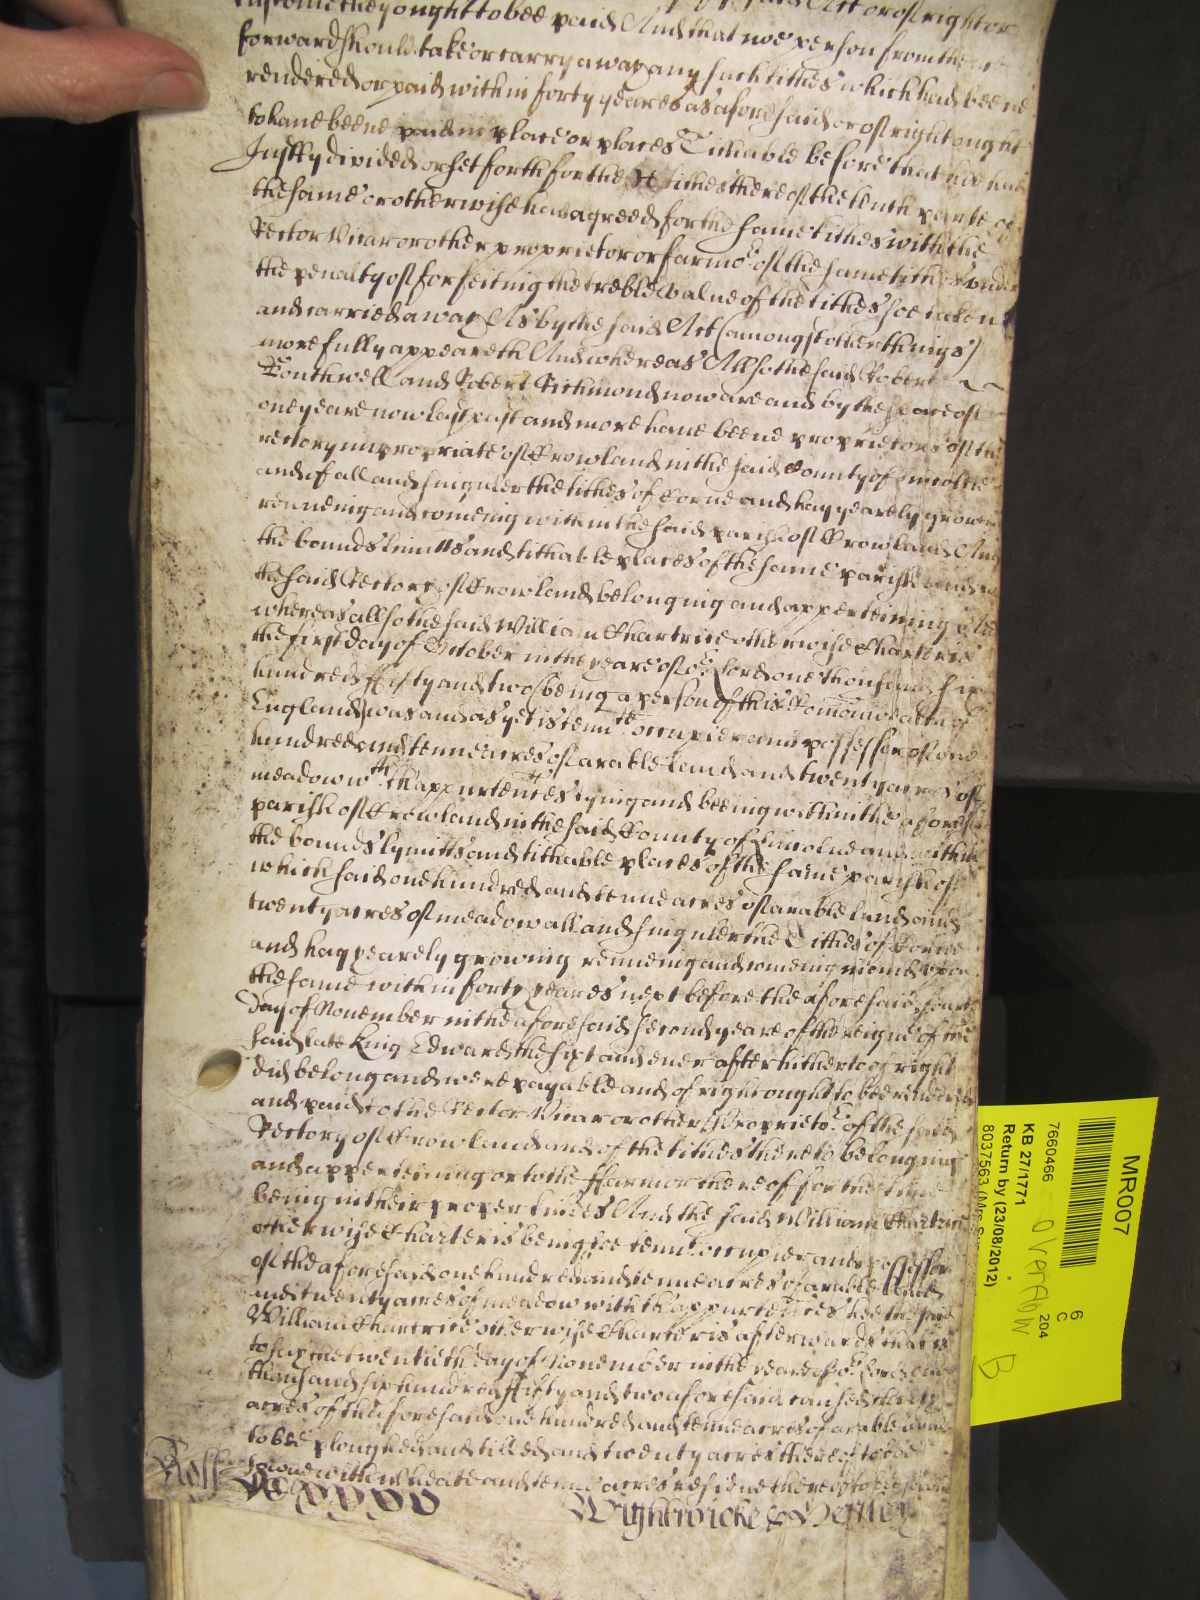 customethey ought to bee paid And that noe person from thence
forward should take or carry away any such tithes which had beene
rendered or paid within forty yeares as aforesaid or of right ought
to have beene paid in place or places Tithable before that hee had
Justly divided or set forth for the tithes thereof the tenth parte of
the same or otherwise have agreed for the same tithes with the
Rector Vicar or other proprietor or farmor of the same tithes under
the penalty of forfeiting the treble value of the tithes soe taken
and carried away As by the said Act (amongst other things)
more fully appeareth And whereas Allso the said Robert
Southwell and Robert Richmond now are and by the space of
one yeare now last past and more have beene proprietors of the
rectory impropriate of Crowland in the said County of Lincolne
and of all and singuler the tithes of Corne and hay yearely growing
renneing and comeing within the said parish of Crowland And
the bounds limitts and tithable places of the same parish and to
the said Rectory of Crowland belonging and apperteining And
whereas allso the said William Chartrice otherwise Charteris
the first day of October in the yeare of or Lord one thousand six
hundred fifty and two being a person of this Comonwealth of
England was and as yet is tennt occupier and possessor of one
hundred and tenne acres of arable land and twenty acres of
meadow wth thappurtences lying and beeing within the aforesaid
parish of Crowland in the said County of Lincolne and within
the bounds lymitts and tithable places of the same parish of
which said one hundred and tenne acres of arable land and
twenty acres of meadow all and singuler the Tithes of Corne
and hay yearely growing renneing and comeing in and upon
the same within forty yeares next before the aforesaid fourth
day of November in the aforesaid second yeare of the reigne of the
said late King Edward the sixt and ever after hitherto of right
did belong and were payable and of right ought to bee rendered
and paid to the Rector Vicar or other Proprietor of the said
Rectory of Crowland and of the tithes thereto belonging
and apperteining or to the ffarmor thereof for the time
being in their proper kindes And the said William Chartrice
otherwise Charteris being soe tennt occupier and possessor
of the aforesaid one hundred and tenne acres of arable land
and twenty acres of meadow with thappurtences hee the said
William Chartrice otherwise Charteris afterwards that is
to say the twentieth day of November in the yeare of or Lord one
thousand six hundred fifty and two aforesaid caused thirty
acres of the aforesaid one hundred and tenne acres of arable land
to bee ploughed and tilled and twenty acres thereof to bee
sowne with wheate and tenne acres residue thereof to bee sowne
Roll
Wightwicke &
MR007
6
C
204
7660466
KB 27/1771
Return by (23/08/2012)
8037563
Overflow
B